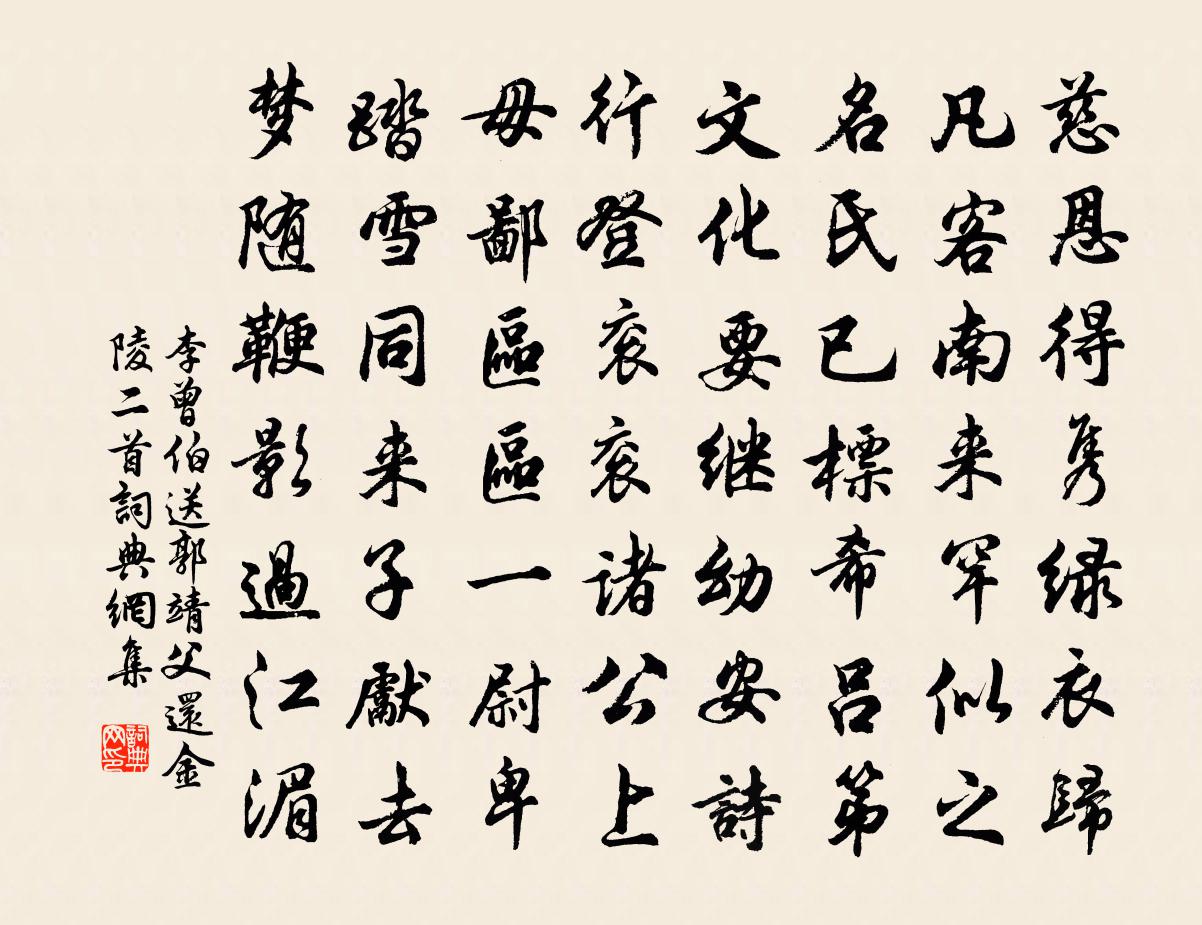 慈恩得隽緑衣歸
凡客南来罕似之
名氏已標希吕第
文化要继幼安詩
行登衮衮诸公上
毋鄙區區一尉卑
踏雪同来子獻去
梦随鞭影過江湄
李曾伯送郭靖父還金
陵二首詞典網集
詞典网印